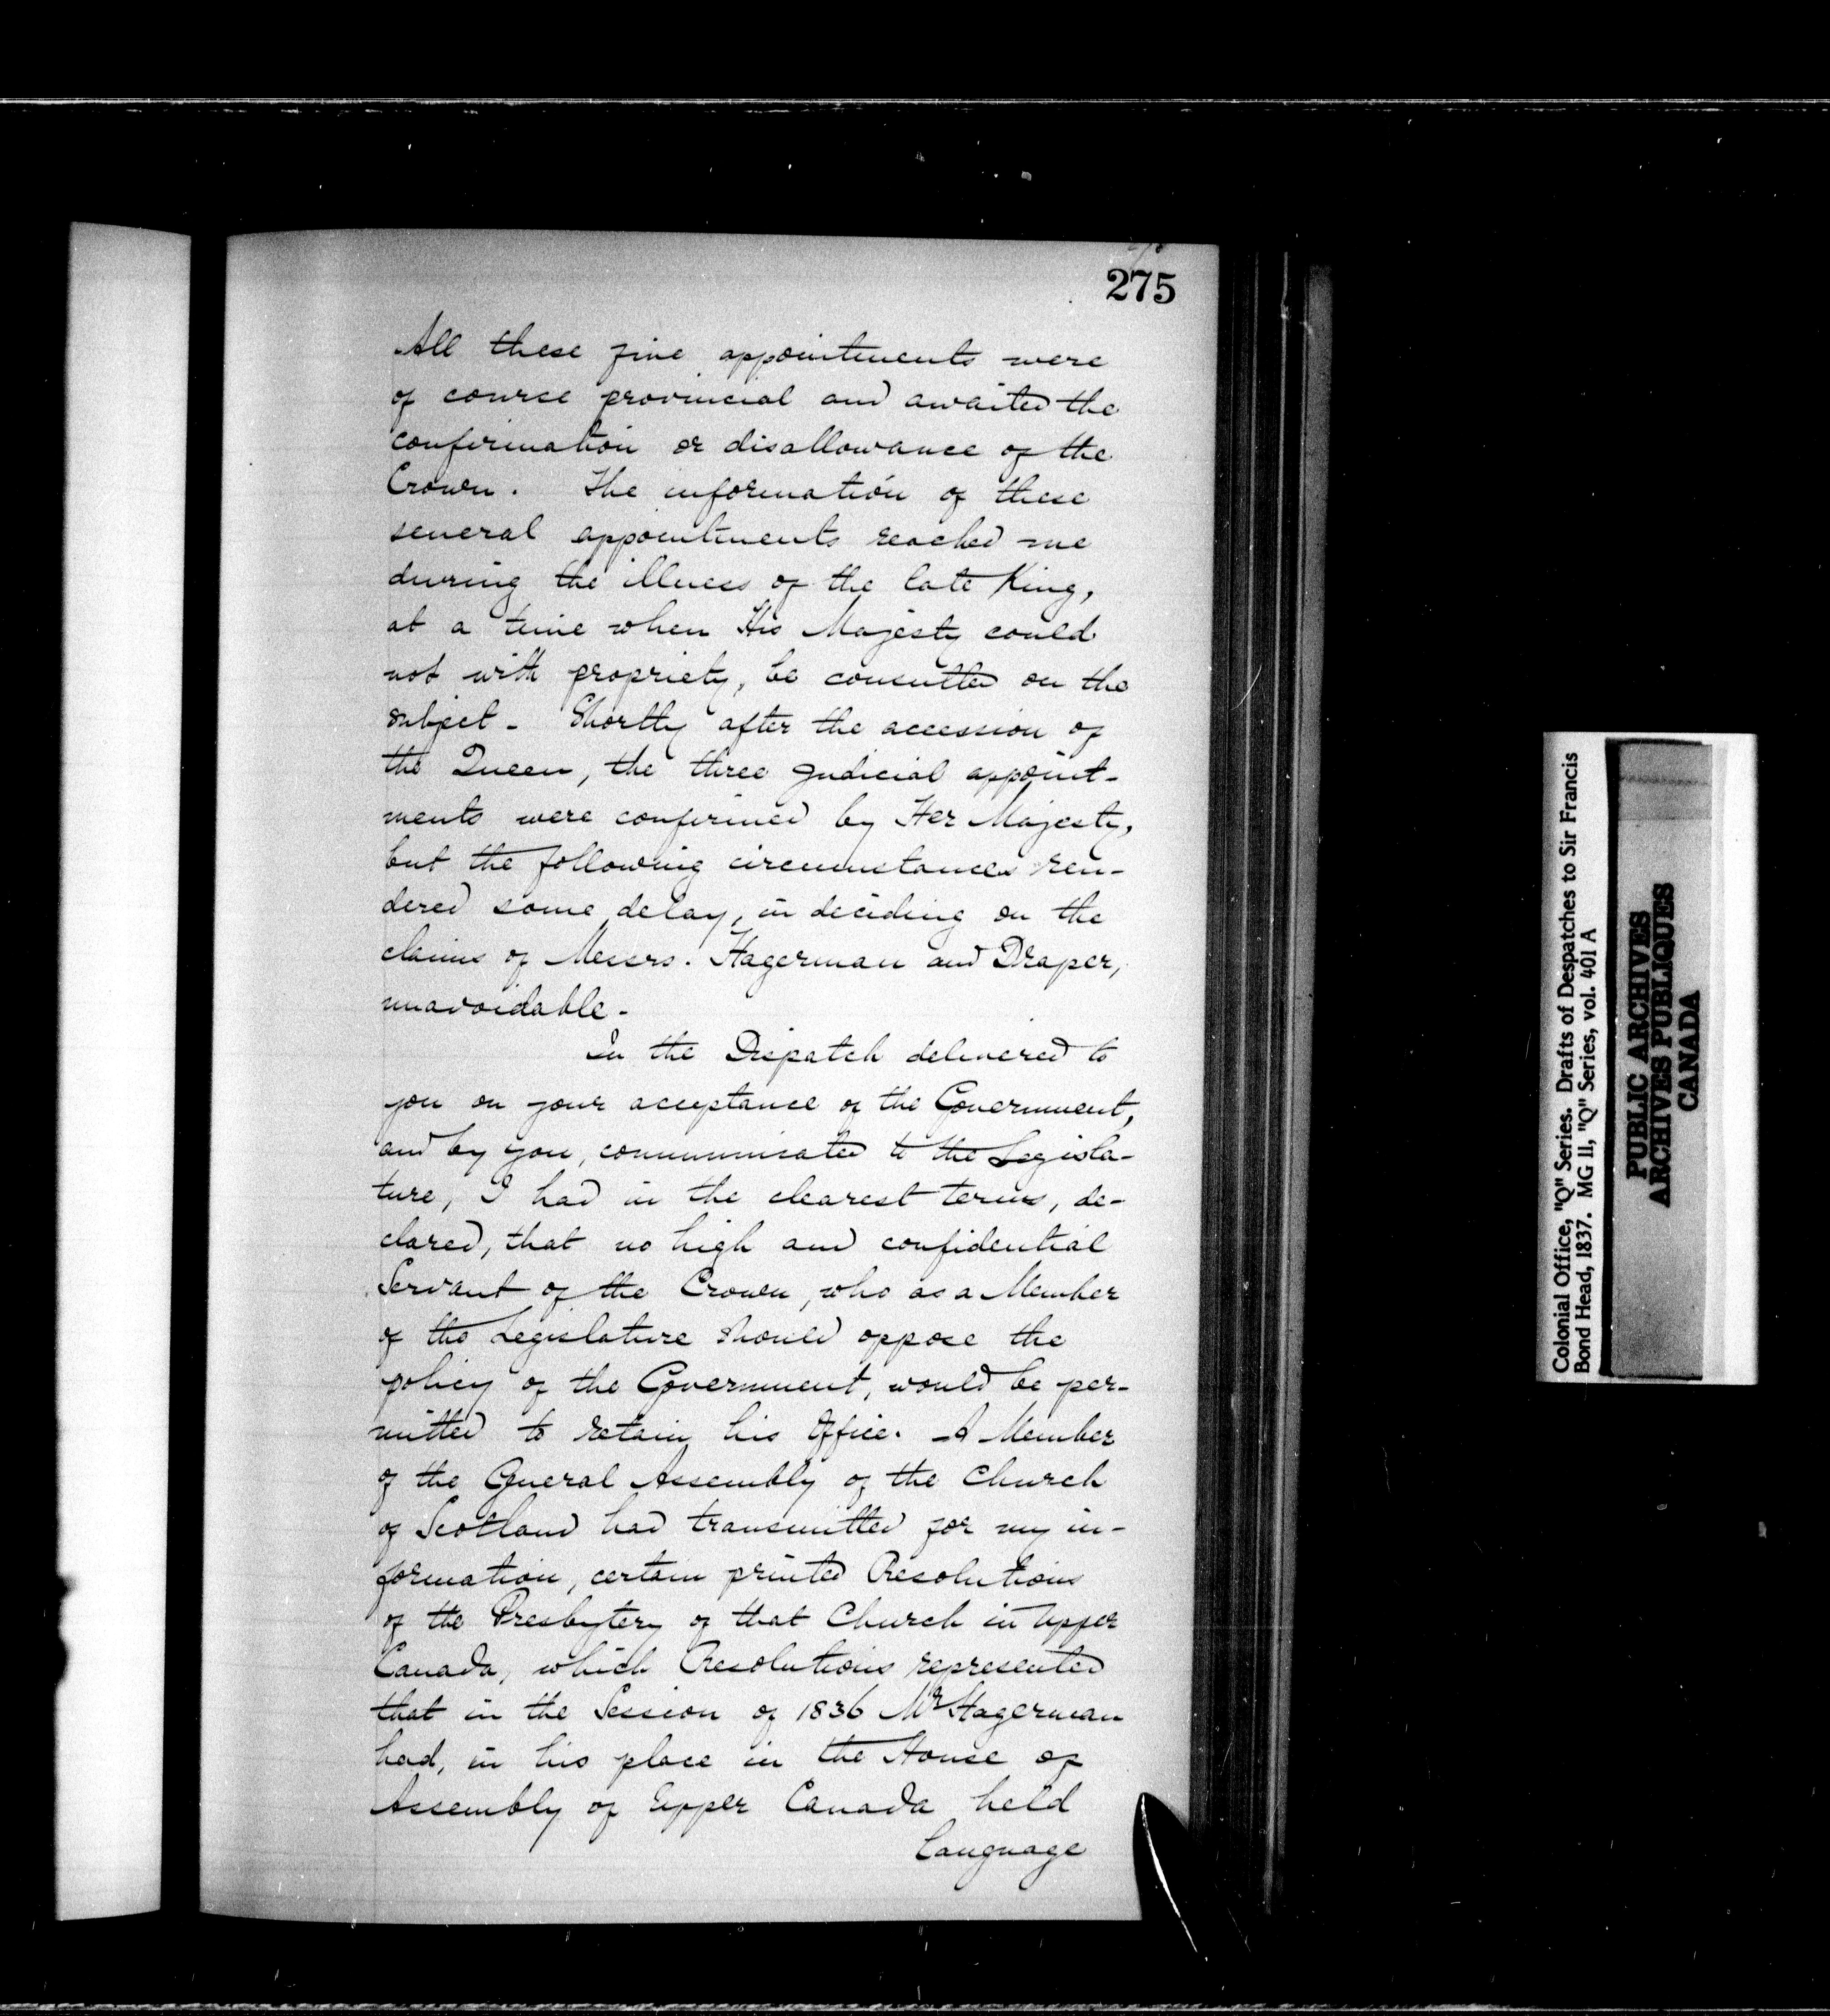 275
All these five appointments were
of course provincial and awaited the
confirmation or disallowance of the
Crown. The information of these
several appointments reached me
during the illness of the late King,
at a time when His Majesty could
not with propriety, be consulted on the
subject - Shortly after the accession of
the Queen, the three judicial appoint-
ments were confirmed by Her Majesty,
but the following circumstances ren-
dered some delay, in deciding on the
claims of Messrs. Hagerman and Draper,
unavoidable -
In the Dispatch delivered to
you on your acceptance of the Government,
and by you, communicated to the Legisla-
ture, I had in the clearest terms, de-
clared, that no high and confidential
Servant of the Crown, who as a Member
of the Legislature should oppose the
policy of the Government, would be per-
mitted to retain his Office. A Member
of the General Assembly of the Church
of Scotland had transmitted for my in-
formation, certain printed Resolutions
of the Presbytery of that Church in Upper
Canada, which Resolutions represented
that in the Session of 1836 Mr Hagerman
had, in his place in the House of
Assembly of Upper Canada held
language
Colonial Office, "Q" Series. Drafts of Despatches to Sir Francis
Bond Head, 1837. MG 11, "Q" Series, vol. 401 A
PUBLIC ARCHIVES
ARCHIVES PUBLIQUES
CANADA